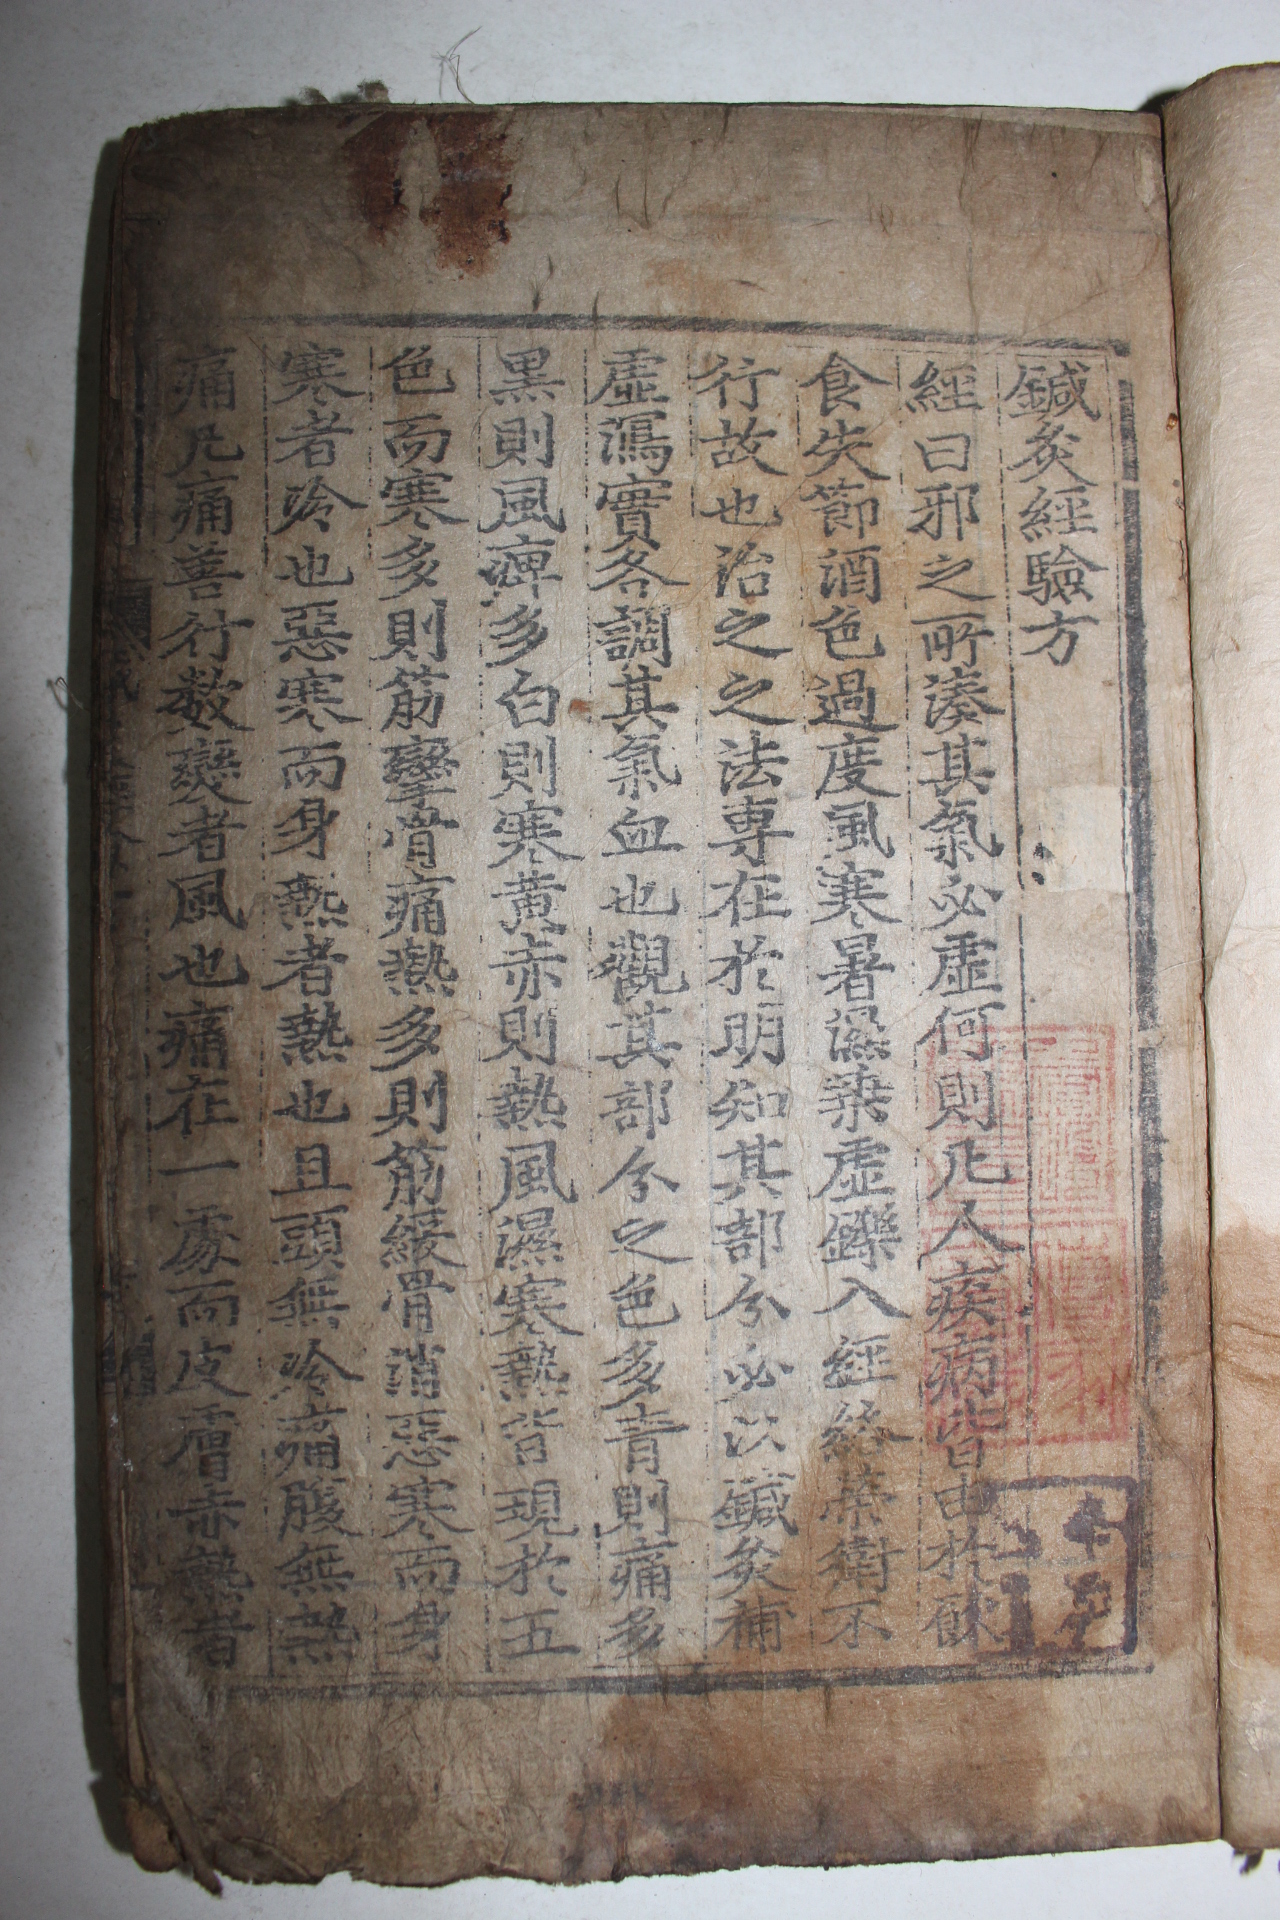 鍼灸經驗方
經曰邪之所湊其氣必虛何則凡人疾病皆由於飮
食失節酒色過度風寒暑濕乘虛鑠入經絡榮衛不
行故也治之之法專在於明知其部分必以鍼灸補
虛瀉實各調其氣血也觀其部分之色多靑則痛多
黑則風痺多白則寒黃赤則熱風濕寒熱皆現於五
色而寒多則筋攣骨痛熱多則筋緩骨消惡寒而身
寒者冷也惡寒而身熱者熱也且頭無冷痛腹無熱
痛凡痛善行數變者風也痛在一處而皮膚赤熱者